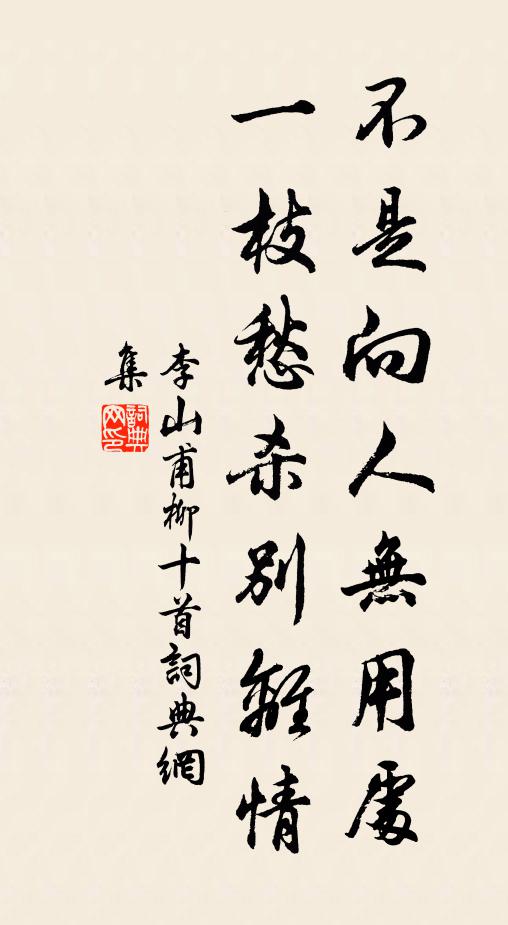 不是向人無用處
一枝愁杀別離情
李山甫柳十首詞典網
集
詞典网印